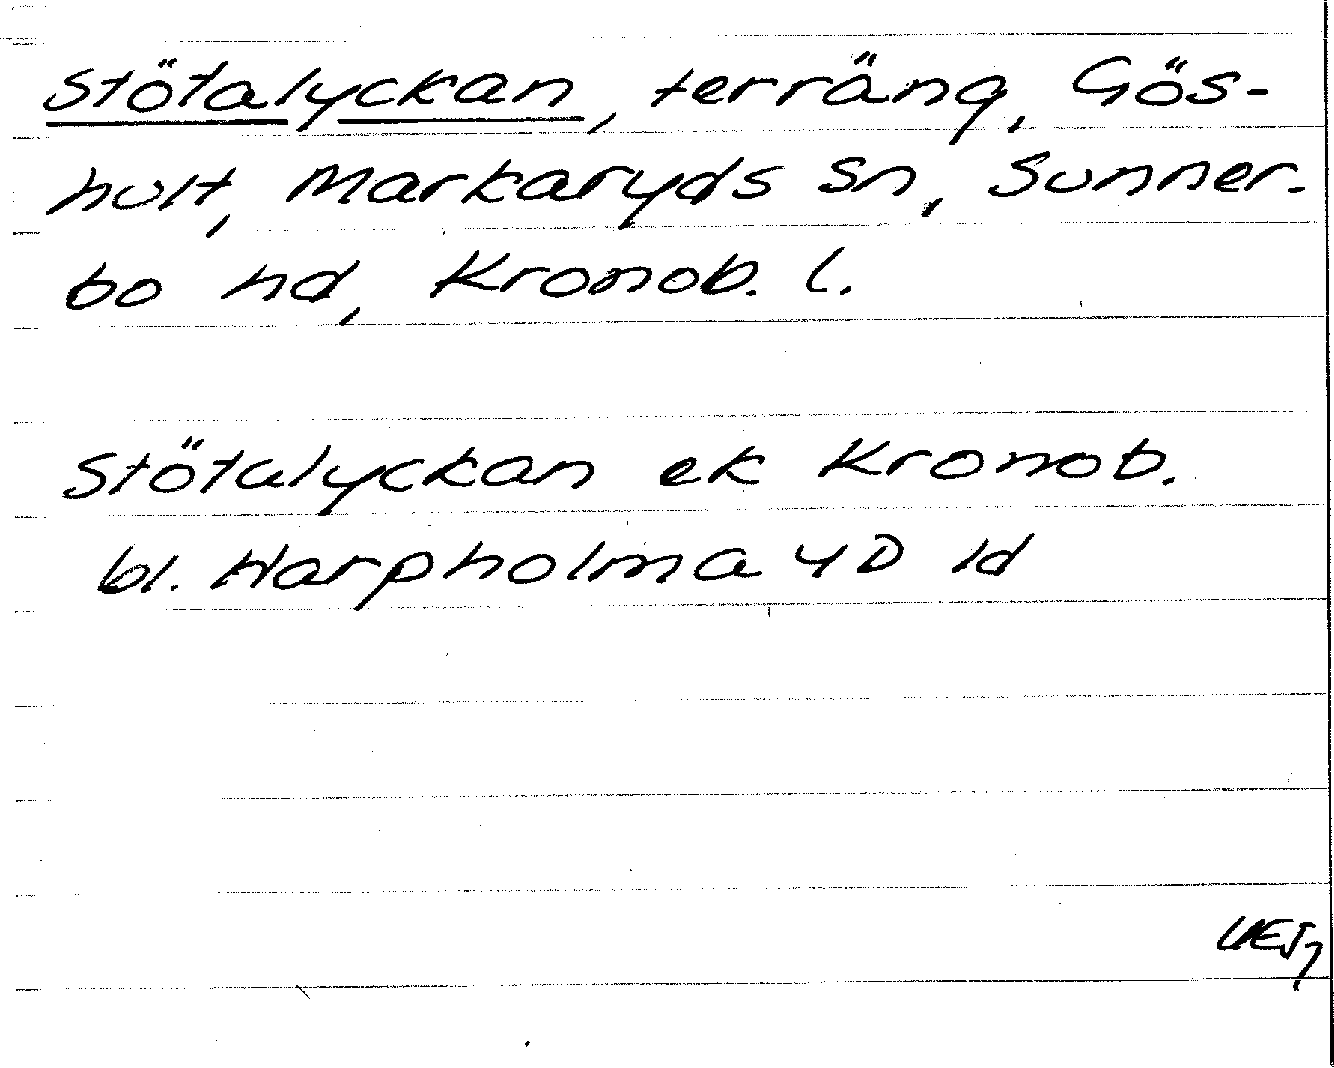 Stötalyckan, terräng, Gös-
hult, Markaryds Sn, Sunner-
bo hd, Kronob. l.
Stötalyckan ek Kronob.
bl. Harpholma 4D 1d